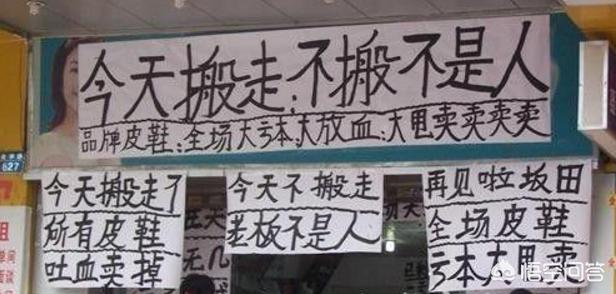 今天搬走;不搬不是人
品牌皮鞋:全场大亏本,大放血,大甩卖卖卖卖
827
今天搬走了
所有皮鞋
吐血卖掉
今天不搬走
老板不是人
再见啦坂田
全场皮鞋
亏本大甩卖
无几
悟空问答